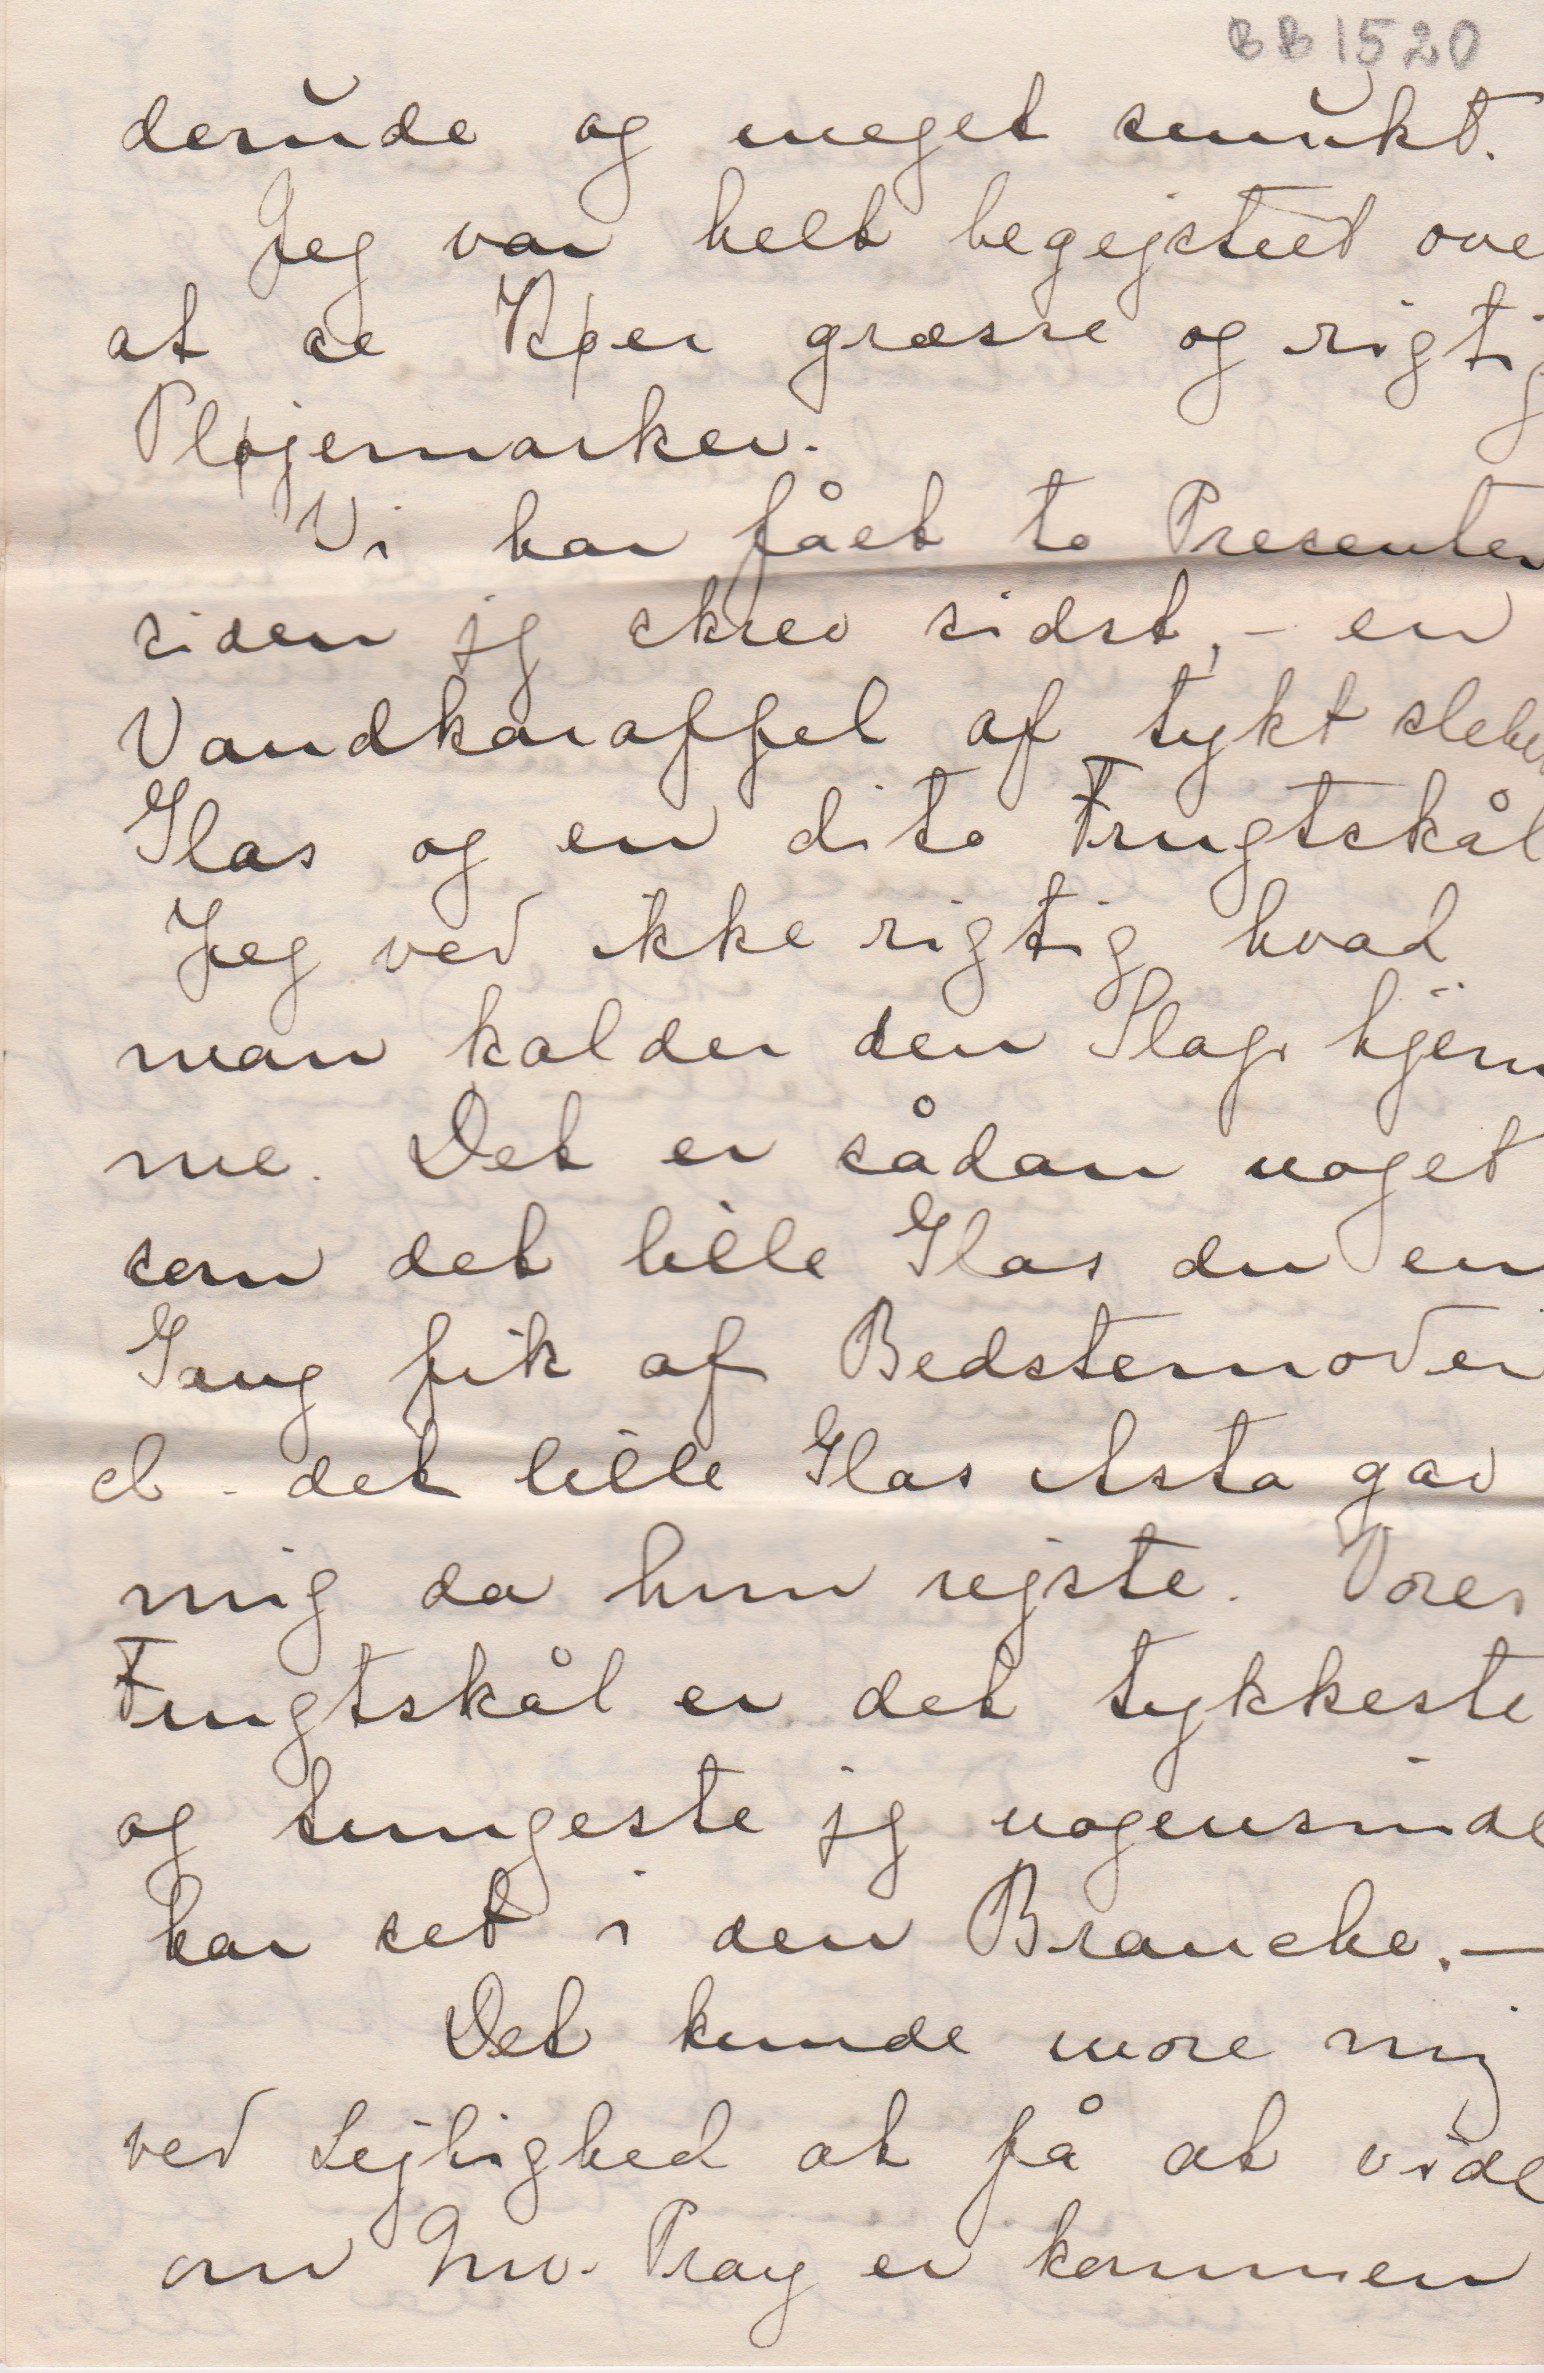 BB1520
derude og meget smukt.
Jeg var helt begejstret ove
at se Køer græsse og rigtig
Pløjemarker.
Vi har fået to Presenter
siden jg skrev sidst, - en
Vandkaraffel af tykt sleben
Glas og en dito Frugtskål
Jeg ved ikke rigtig hvad
man kalder den Slags hjem
me. Det er sådan noget
som det lille Glas du en
Gang fik af Bedstemoder
el. det lille Glas Asta gav
mig da hun rejste. Vores
Frugtskål er det tykkeste
og tungeste jg nogensinde
har set i den Branche. -
Det kunde more mig
ved Lejlighed at få at vide
om Mrs. Pray er kommen